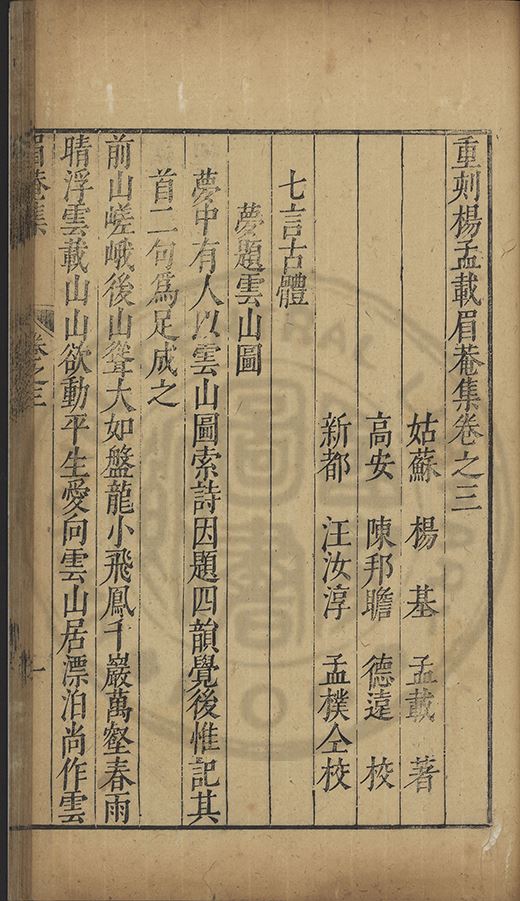 重刻楊孟載眉菴集卷之三
姑蘇 楊 基 孟載 著
高安 陳邦瞻 德遠 校
新都 汪汝淳 孟樸仝校
七言古體
夢題雲山圖
夢中有人以雲山圖索詩因題四韻覺後惟記其
首二句爲足成之
前山嵯峨後山聳大如盤龍小飛鳳千巖萬壑春雨
晴浮雲載山山欲動平生愛向雲山居漂泊尚作雲
眉菴集 卷之三 一